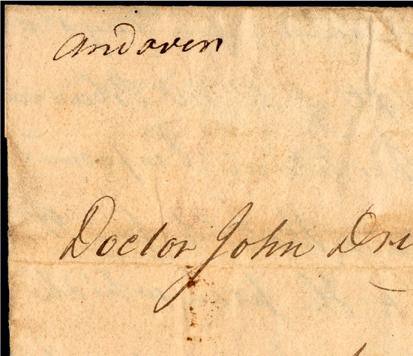 Andover
Doctor John Dri